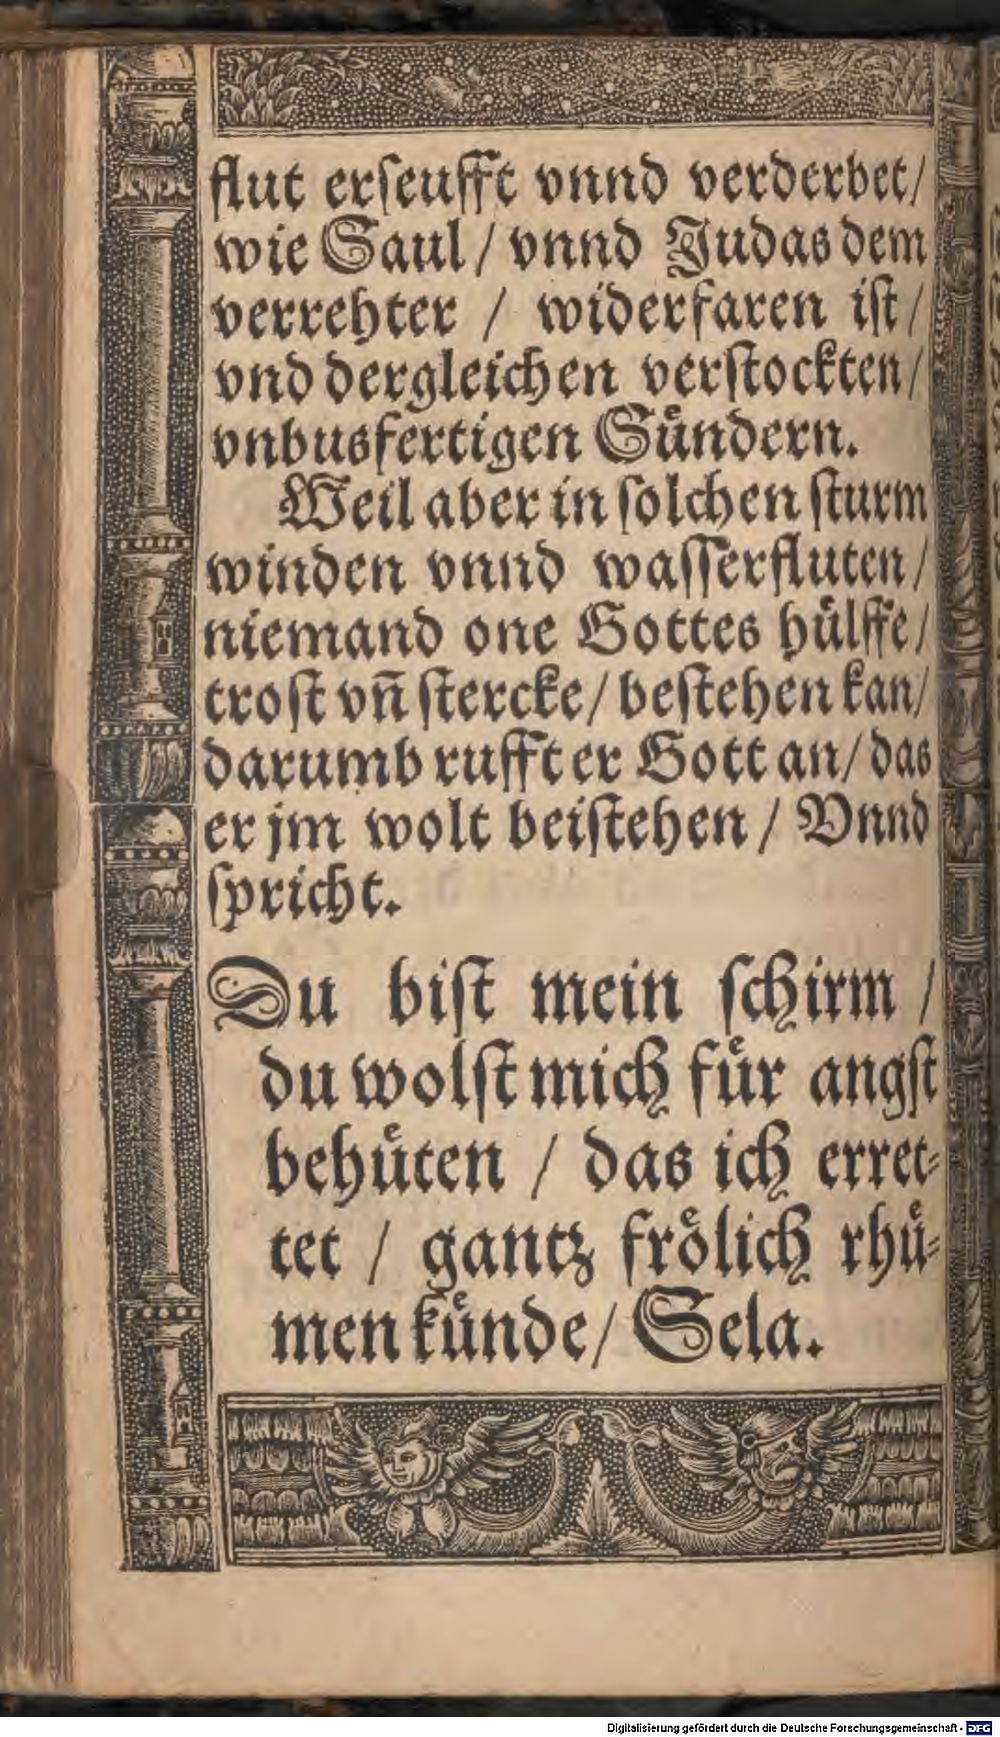 flut erſeufft vnnd verderbet/
wie Saul / vnnd Judas dem
verrehter / widerfaren iſt /
vnd dergleichen verſtockten/
vnbusfertigen Suͤndern.
Weil aber in ſolchen ſturm
winden vnnd waſſerfluten /
niemand one Gottes huͤlffe/
troſt vn̄ ſtercke/ beſtehen kan/
darumb rufft er Gott an/ das
er jm wolt beiſtehen / Vnnd
ſpricht.
Du biſt mein ſchirm /
du wolſt mich fuͤr angſt
behuͤten / das ich erret⸗
tet / gantz froͤlich rhuͤ⸗
men kuͤnde/ Sela.
Digitalisierung gefördert durch die Deutsche Forschungsgemeinschaft - DFG